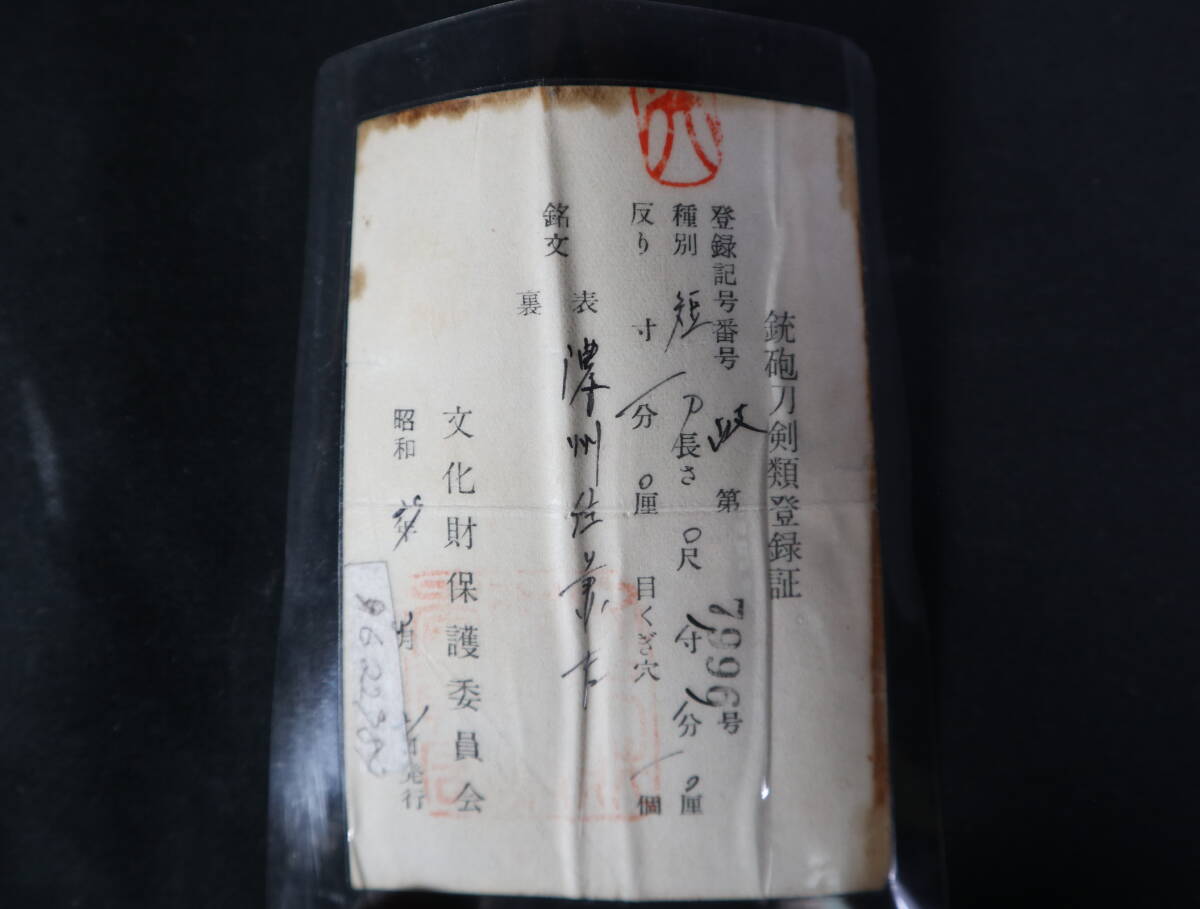 銃砲刀剣類登録証
登録記号番号 岐 第 79969号
種別 短刀 長さ 〇尺 寸 分 〇厘
反り 寸 一分 〇厘 目くぎ穴 一個
銘文 表 濃州住兼吉
裏
文化財保護委員会
昭和 年 月 日発行